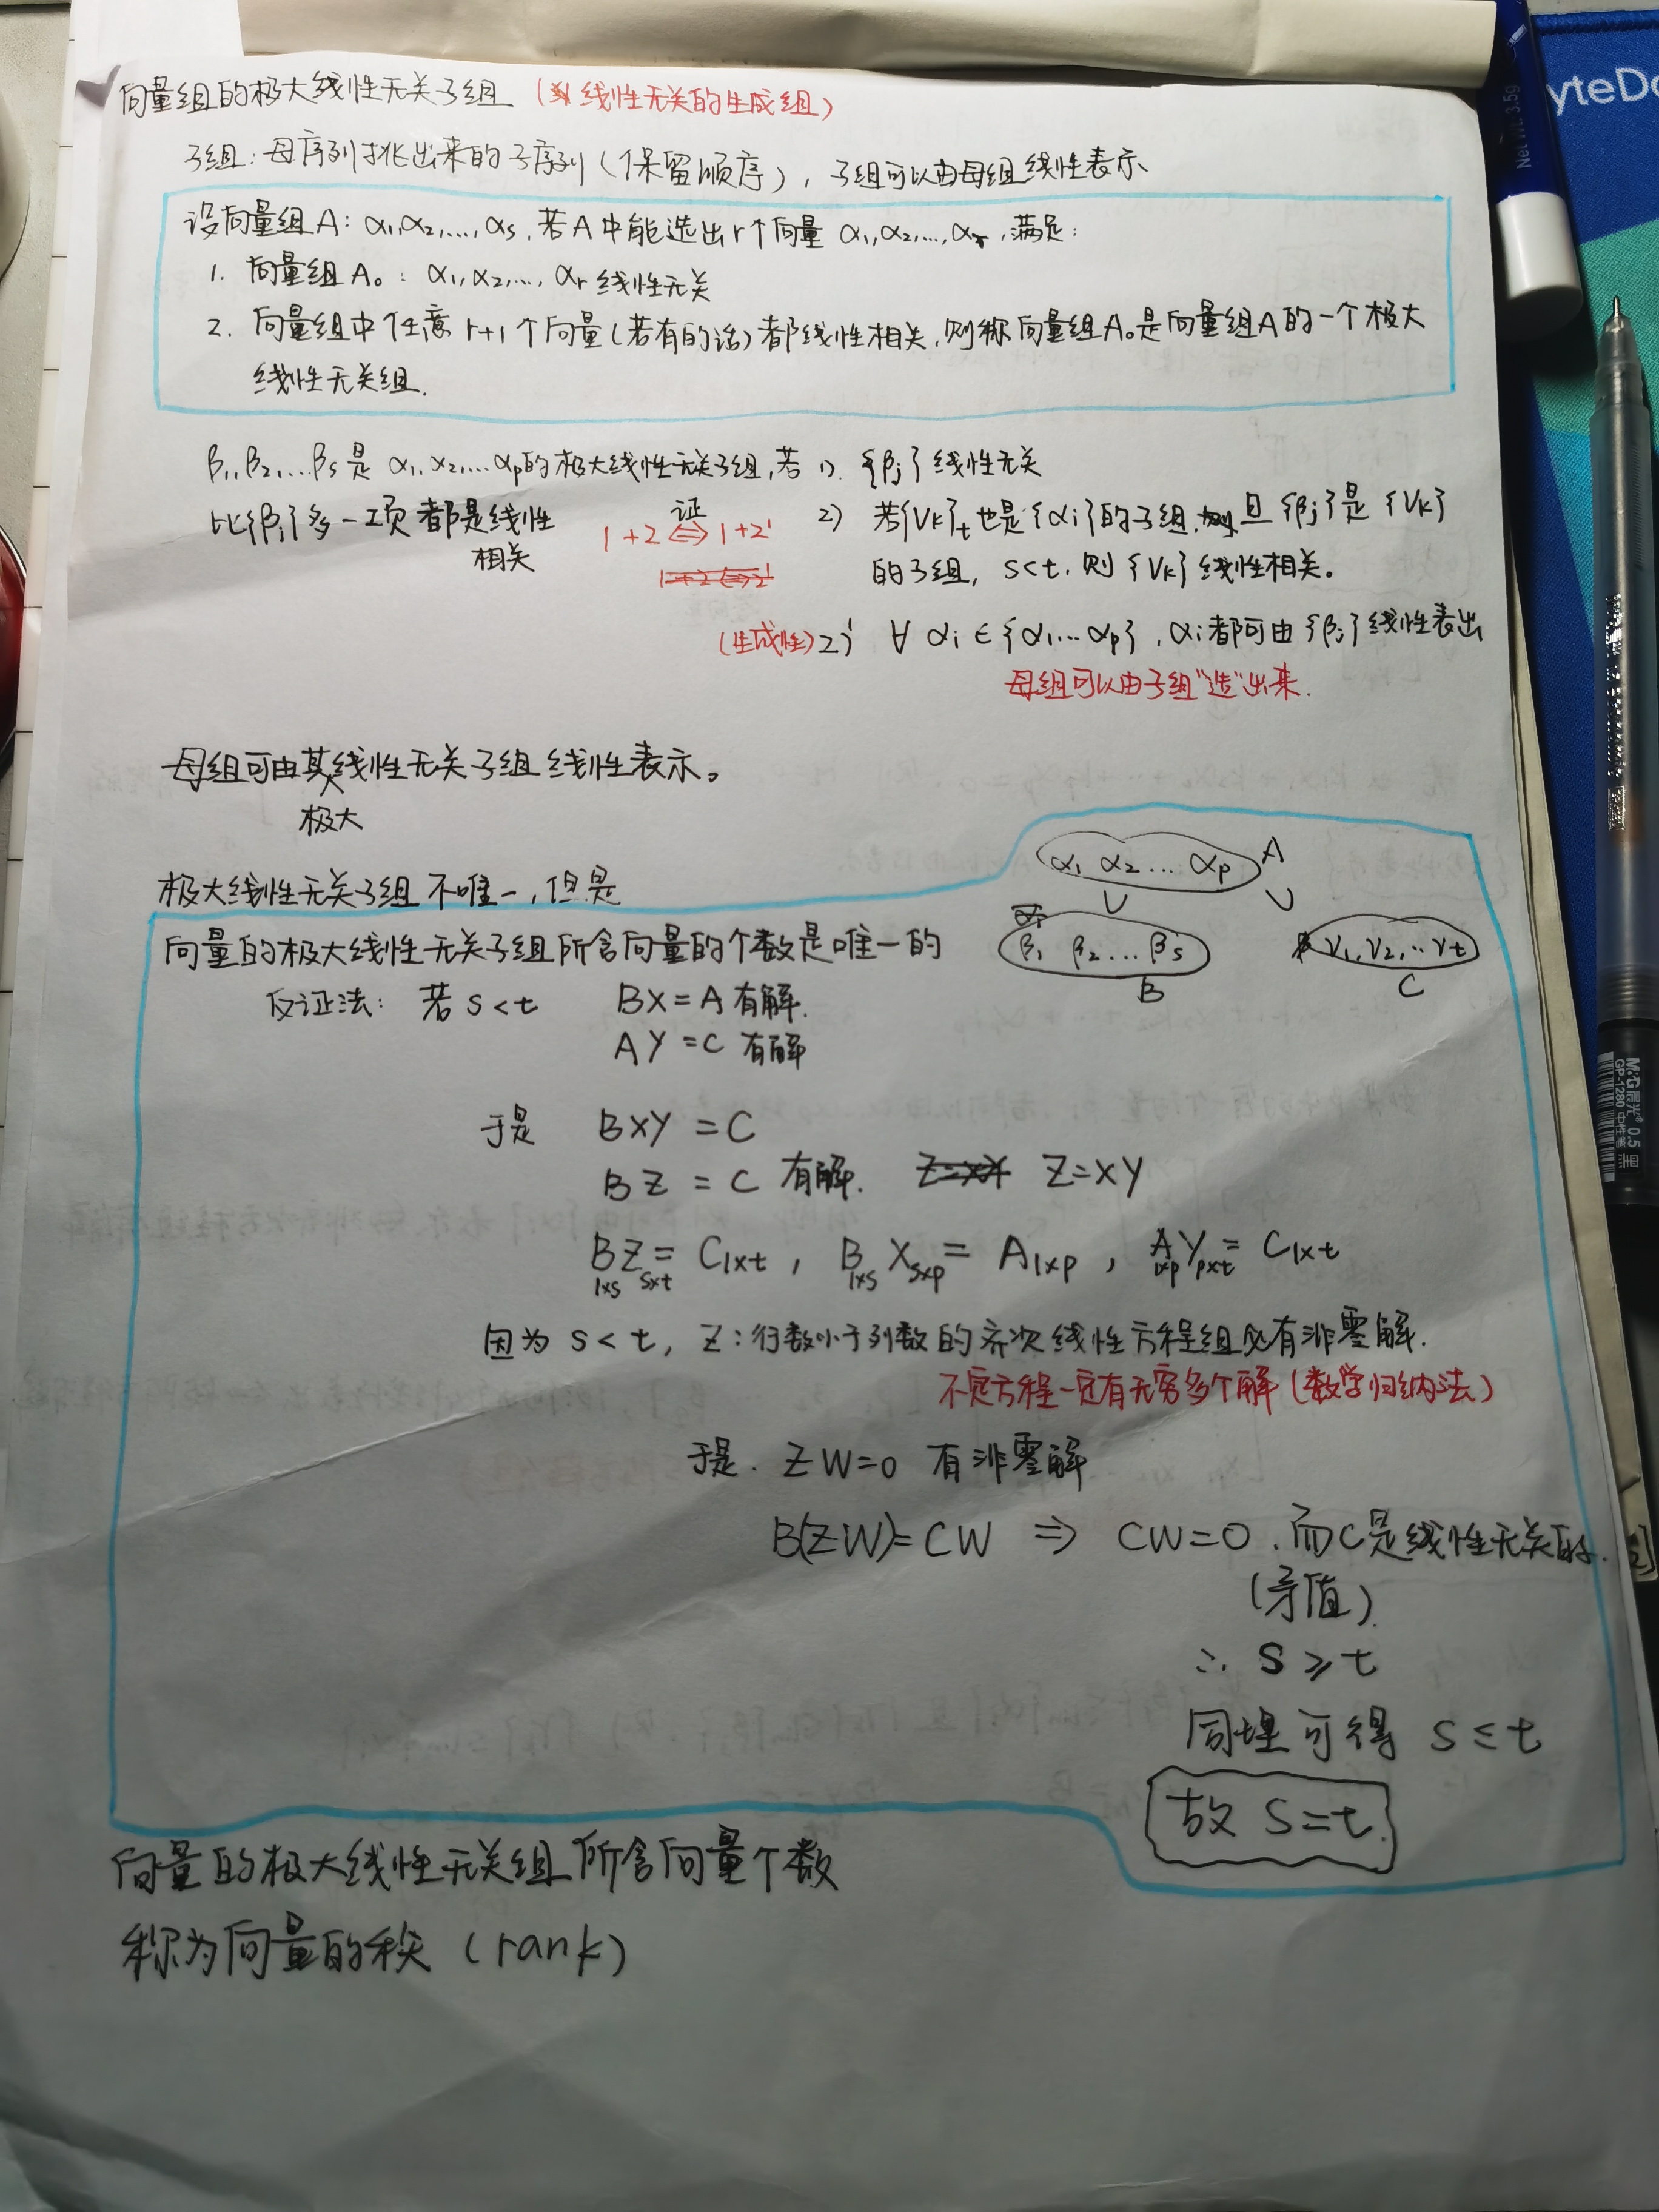 向量组的极大线性无关子组（线性无关的生成组）
子组：母序列挑出来的子序列（保留顺序），子组可以由母组线性表示
设向量组A：α₁,α₂,…,αs,若A中能选出r个向量 α₁,α₂,…,αr,满足：
1. 向量组A₀：α₁,α₂,…,αr线性无关
2. 向量组中任意r+1个向量(若有的话)都线性相关,则称向量组A₀是向量组A的一个极大
线性无关组.
β₁,β₂,…βs是α₁,α₂,…αp的极大线性无关子组,若 1) {βj}线性无关
比{βj}多一项都是线性相关
证
1+2⇔1+2'
2) 若{Vk}t也是{αi}的子组,且{βj}是{Vk}
的子组, s<t, 则{Vk}线性相关。
(生成性)2') ∀ αi∈{α₁…αp}, αi都可由{βj}线性表出
母组可以由子组"造"出来.
母组可由其极大线性无关子组线性表示。
α₁ α₂… αp A
∪ ∪
β₁ β₂…βs B
γ₁,γ₂,…γt C
极大线性无关子组不唯一,但是
向量的极大线性无关子组所含向量的个数是唯一的
反证法: 若 s<t BX=A有解.
AY=C有解
于是 BXY=C
BZ=C 有解. Z=XY
B1×s Zs×t = C1×t , B1×s Xs×p = A1×p , A1×p Yp×t = C1×t
因为 s<t, Z:行数小于列数的齐次线性方程组必有非零解.
不定方程一定有无穷多个解(数学归纳法)
于是. ZW=0 有非零解
B(ZW)=CW ⇒ CW=0.而C是线性无关的.
(矛盾)
∴ s≥t
同理可得 s≤t
故 s=t.
向量的极大线性无关组所含向量个数
称为向量的秩(rank)
yteD
Net WT. 3.5g
M&G晨光® 0.5
GP-1280 中性笔 黑